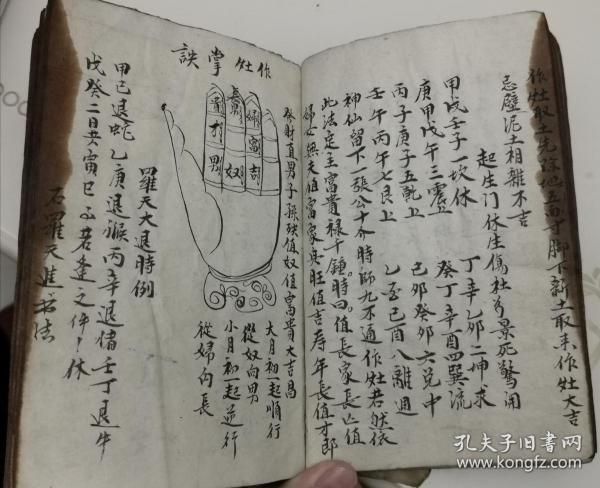 作灶取土先除地五面寸脚下新土取来作灶大吉
忌壁泥土相雜不吉
起生门休生傷杜景死驚開
甲戊壬子一坎休
丁辛乙卯二坤求
庚甲戊午三震上
癸丁辛酉四巽流
丙子庚子五乾上
己卯癸卯六兑中
壬午丙午七艮上
乙至己酉八離週
神仙留下一張公十个時師九不通作灶若然依
此法定主富貴禄千鍾時曰值長家長亡值
婦女無夫值富家興旺值吉寿年長值才郎
發財直男子孫殃值奴值富貴大吉昌
大月初一起順行
從奴向男
小月初一起逆行
從婦向長
作灶掌訣
長
婦
富
吉
才
男
奴
貴
羅天大退時例
甲己退蛇乙庚退猴丙辛退猪壬丁退牛
戊癸二日共寅巳不若逢之件〻休
石羅天進书法
孔夫子旧書网
www.kongfz.com